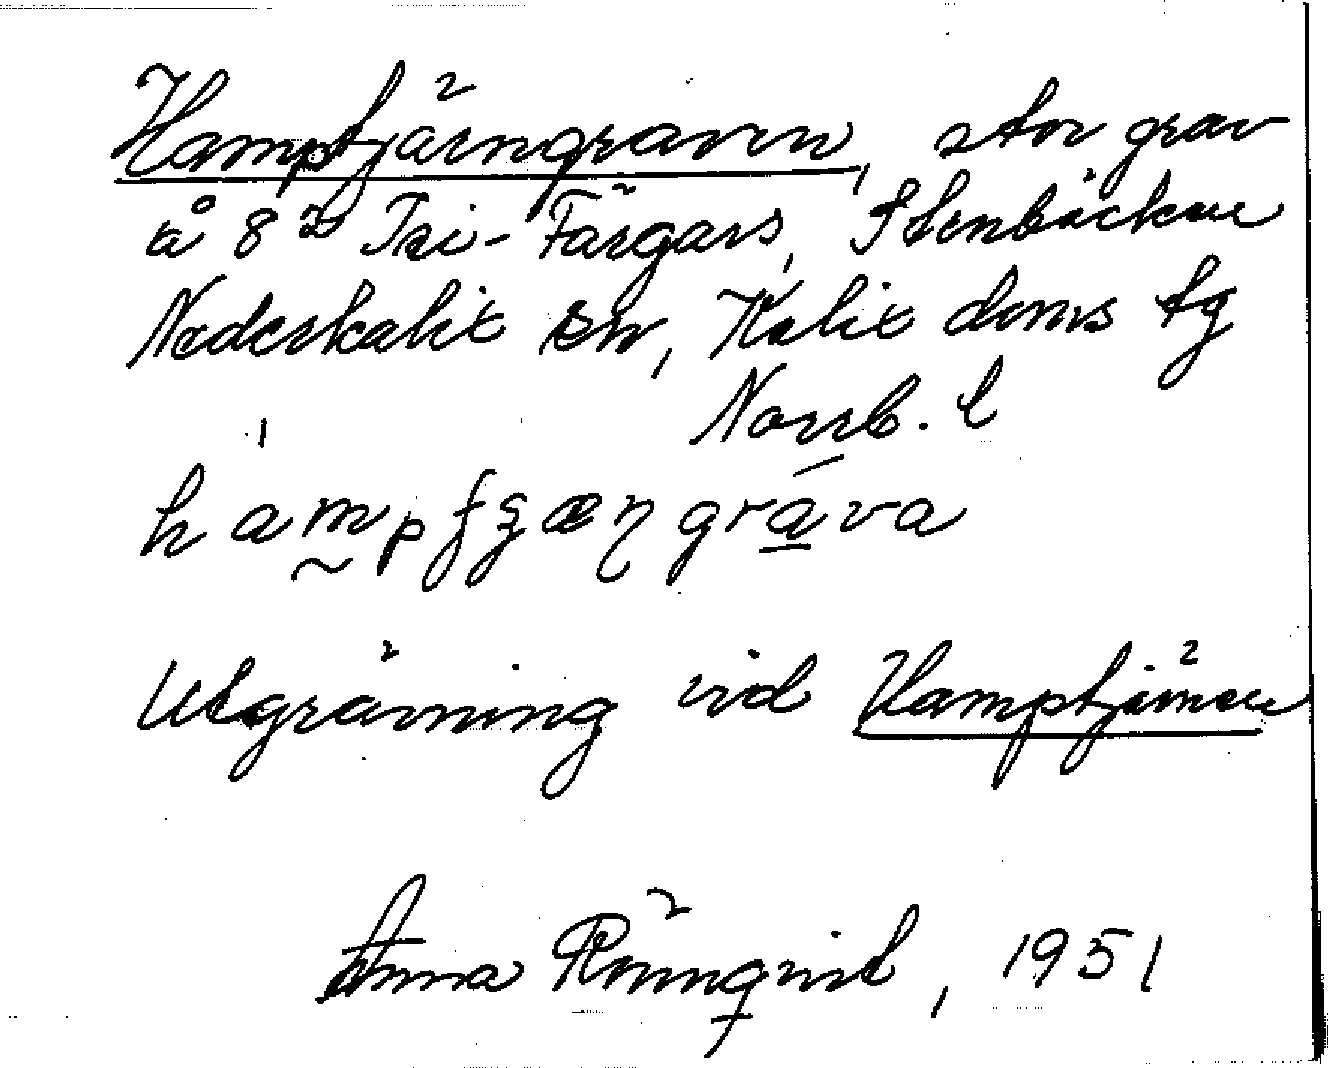 Hamptjärngraven, stor grav
å 8² Jri-Färgars, Stenbäcken
Nederkalix sn, Kalix doms tg
Norrb. l
hampfʒæŋgráva
Utgrävning vid Hamptjärnen
Anna Rönnqvist, 1951